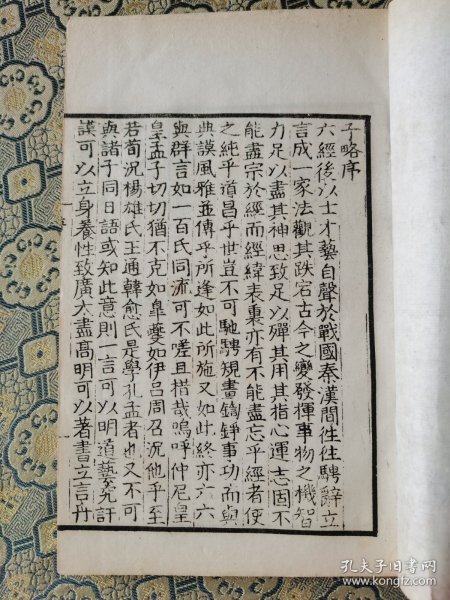 子略序
六經後以士才藝自聲於戰國秦漢間徃徃騁辭立
言成一家法觀其跌宕古今之變發揮事物之機智
力足以盡其神思致足以殫其用其指心運志固不
能盡宗於經而經緯表裏亦有不能盡忘乎經者使
之純乎道昌乎世豈不可馳騁規畫鎪錚事功而與
典謨風雅並傳乎所逢如此所施又如此終亦六六
與群言如一百氏同流可不嗟且惜哉嗚呼仲尼皇
皇孟子切切猶不克如皐夔如伊吕周召况他乎至
若荀况楊雄氏王通韓愈氏是學孔孟者也又不可
與諸子同日語或知此意則一言可以明道藝究訏
謨可以立身養性致廣大盡髙明可以著書立言丹
孔夫子旧书网
kongfz.com